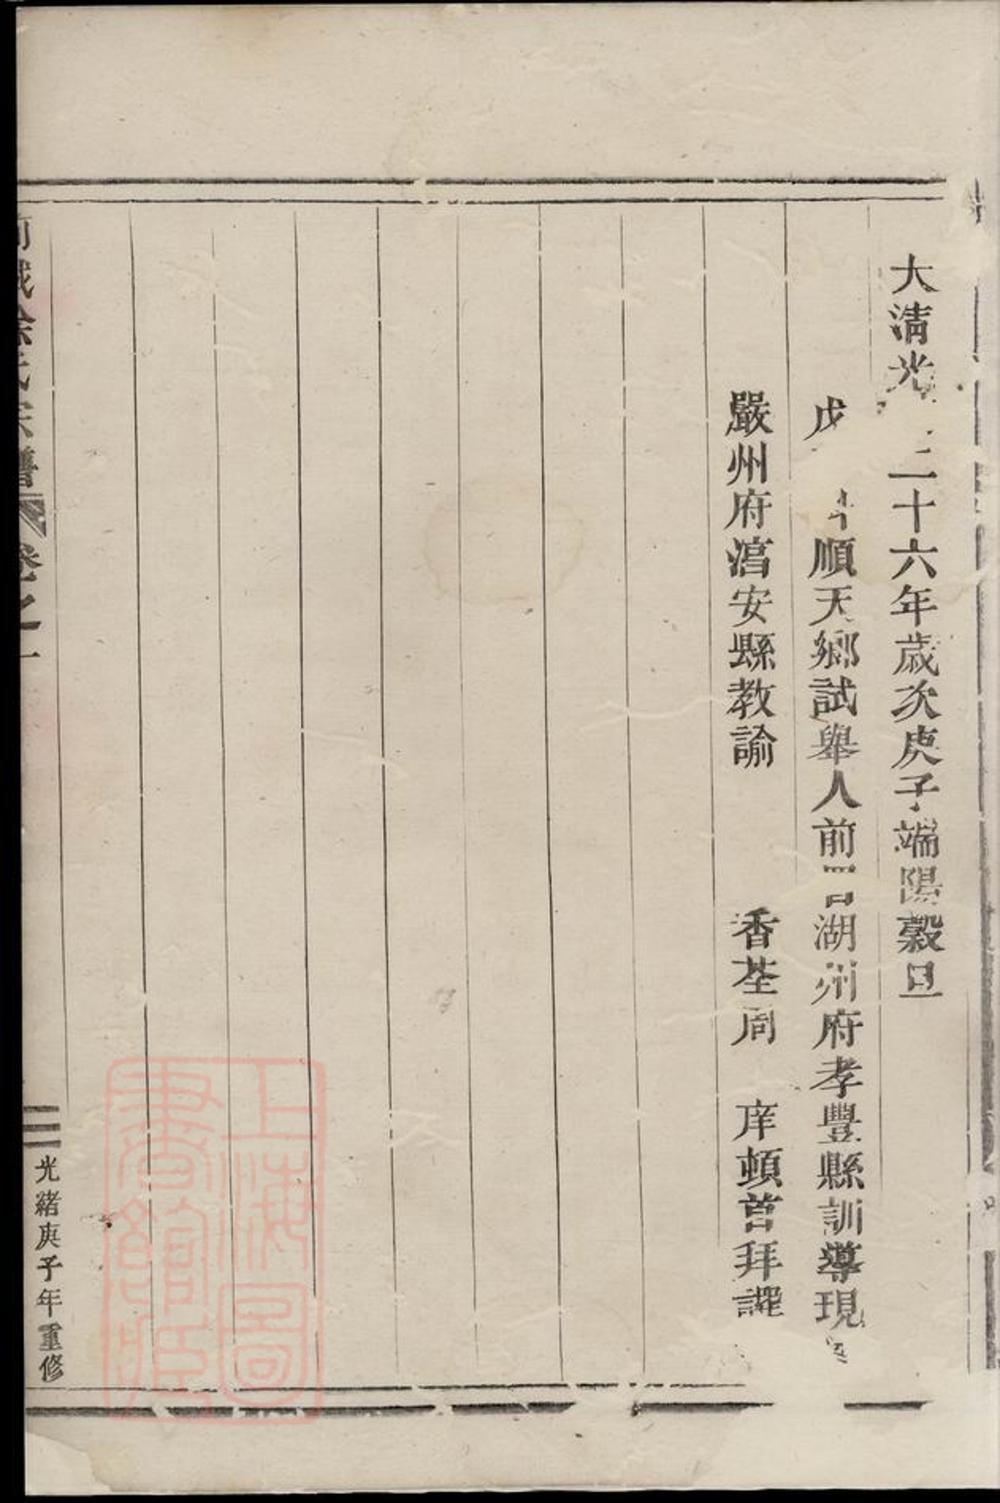 大清光二十六年歲次庚子端陽穀旦
戊順天鄉試舉人前署湖州府孝豐縣訓導現
嚴州府湻安縣教諭 香荃周 庠頓首拜譔
城徐氏宗譜 卷之一
光緒庚子年重修
上海圖書館藏